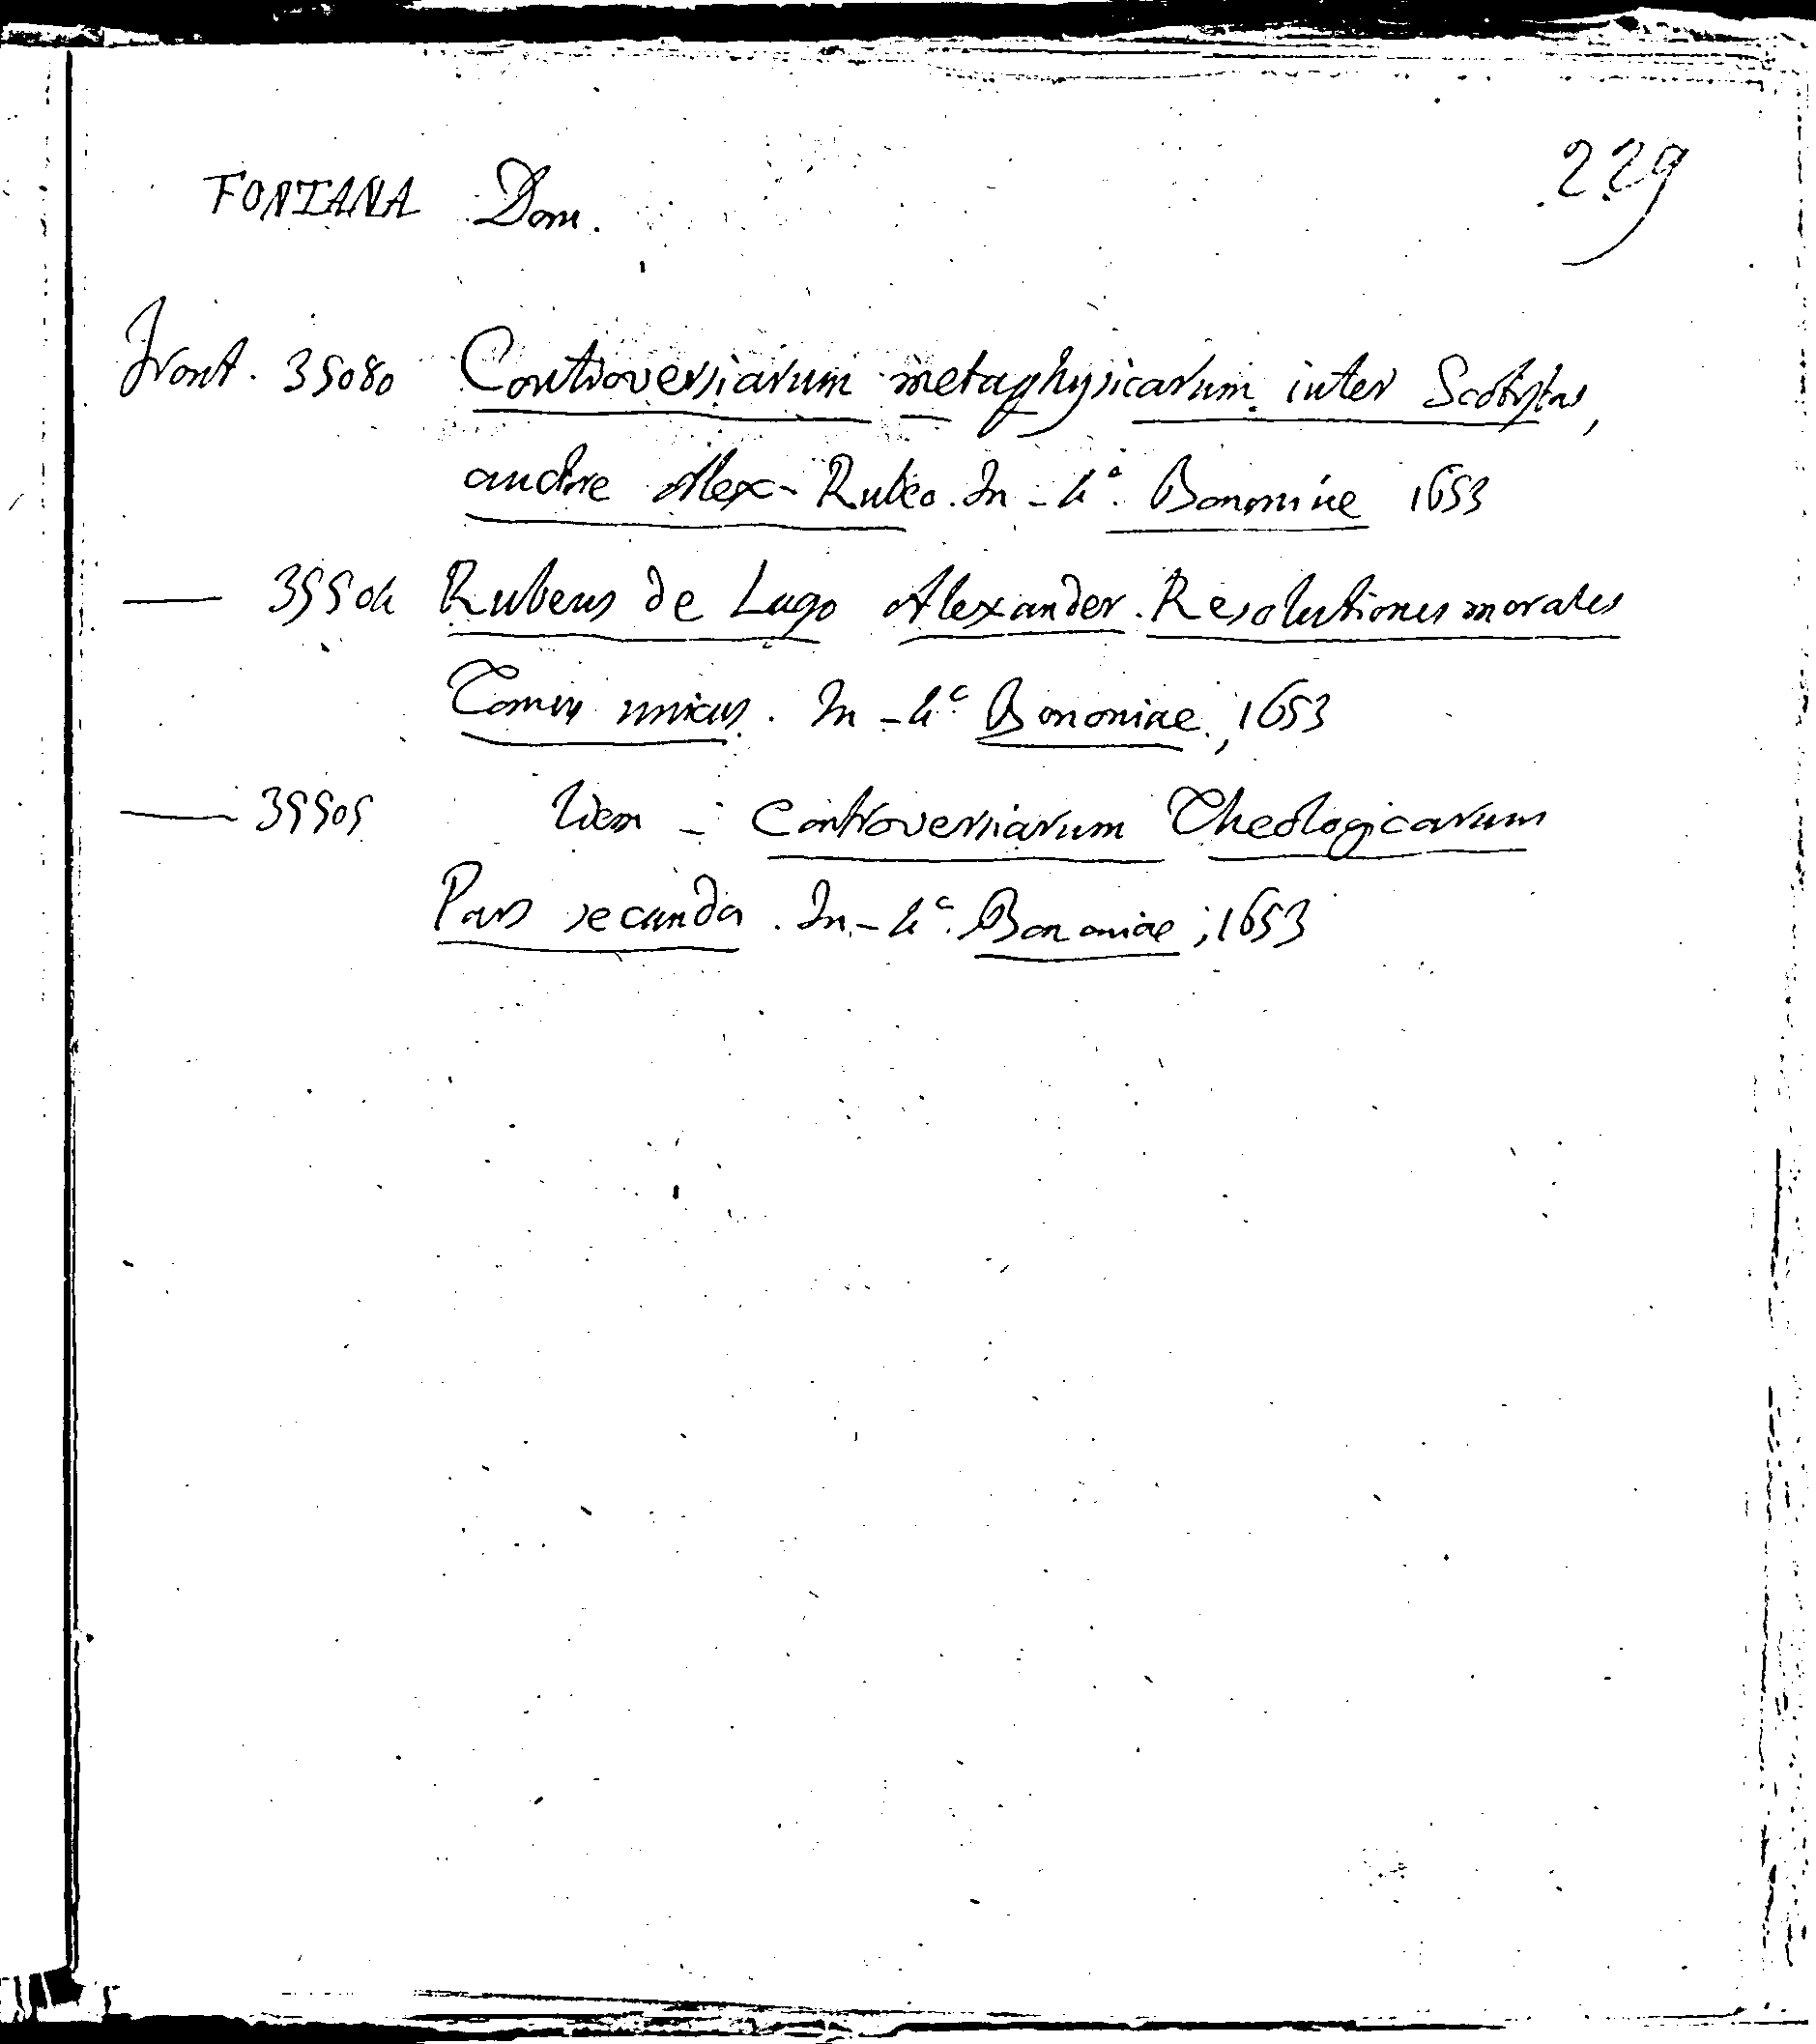 FONTANA Dom.
229
Front. 35080 Controversiarum metaphysicarum inter Scotistas,
auctore Alex. Rubeo. In-4°. Bononiae 1653
— 35504 Rubeus de Lugo Alexander. Resolutiones morales
Tomus unicus. In-4° Bononiae, 1653
— 35505 Idem - Controversiarum Theologicarum
Pars secunda. In-4°. Bononiae, 1653